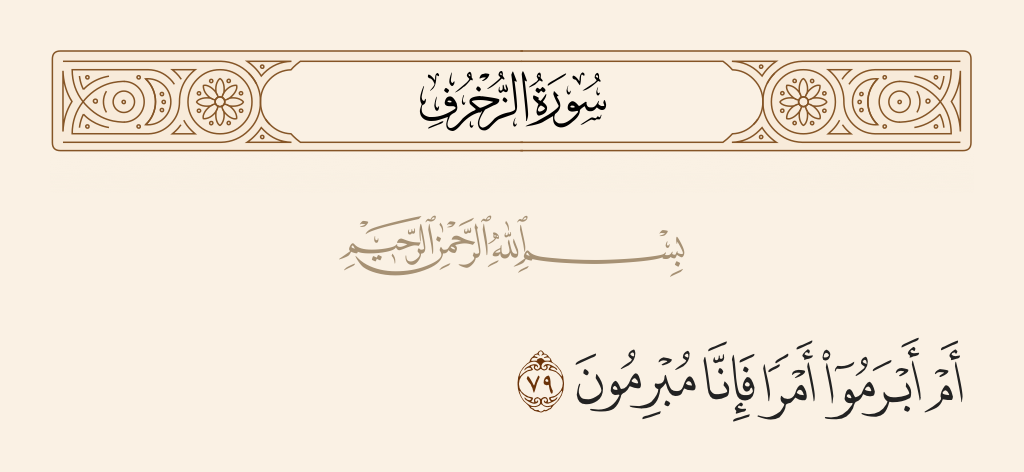 سُورَةُ الزُّخْرُفِ
بِسْمِ ٱللَّهِ ٱلرَّحْمَٰنِ ٱلرَّحِيمِ
أَمْ أَبْرَمُوٓا۟ أَمْرًا فَإِنَّا مُبْرِمُونَ ٧٩